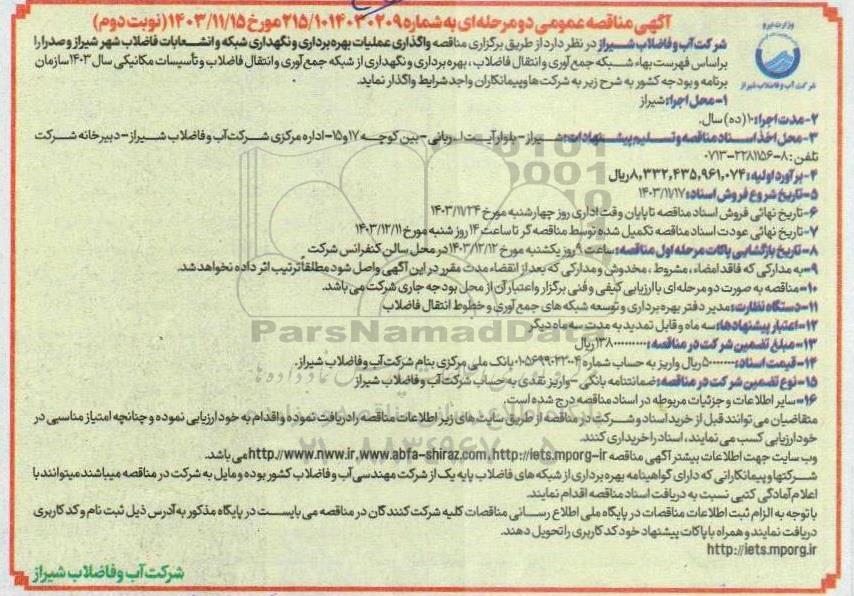 آگهی مناقصه عمومی دو مرحله ای به شماره ۲۱۵/۱۰۱۴۰۳۰۲۰۹ مورخ ۱۴۰۳/۱۱/۱۵ (نوبت دوم)
وزارت نیرو
شرکت آب و فاضلاب شیراز
شرکت آب و فاضلاب شیراز در نظر دارد از طریق برگزاری مناقصه واگذاری عملیات بهره برداری و نگهداری شبکه و انشعابات فاضلاب شهر شیراز و صدرا را
براساس فهرست بهاء شبکه جمع آوری و انتقال فاضلاب ، بهره برداری و نگهداری از شبکه جمع آوری و انتقال فاضلاب و تأسیسات مکانیکی سال ۱۴۰۳ سازمان
برنامه و بودجه کشور به شرح زیر به شرکت ها و پیمانکاران واجد شرایط واگذار نماید.
۱-محل اجرا: شیراز
۲-مدت اجرا: ۱۰ (ده) سال.
۳-محل اخذ اسناد مناقصه و تسلیم پیشنهادات: شیراز - بلوار آیت اله ربانی - بین کوچه ۱۷ و ۱۵ - اداره مرکزی شرکت آب و فاضلاب شیراز - دبیرخانه شرکت
تلفن: ۸-۲۲۸۱۱۵۶-۰۷۱۳
۴-برآورد اولیه: ۸,۳۳۲,۴۳۵,۹۶۱,۰۷۴ ریال
۵-تاریخ شروع فروش اسناد: ۱۴۰۳/۱۱/۱۷
۶-تاریخ نهائی فروش اسناد مناقصه تا پایان وقت اداری روز چهارشنبه مورخ ۱۴۰۳/۱۱/۲۴
۷-تاریخ نهائی عودت اسناد مناقصه تکمیل شده توسط مناقصه گر تا ساعت ۱۴ روز شنبه مورخ ۱۴۰۳/۱۲/۱۱
۸-تاریخ بازگشایی پاکات مرحله اول مناقصه: ساعت ۹ روز یکشنبه مورخ ۱۴۰۳/۱۲/۱۲ در محل سالن کنفرانس شرکت
۹-به مدارکی که فاقد امضاء ، مشروط ، مخدوش و مدارکی که بعد از انقضاء مدت مقرر در این آگهی واصل شود مطلقاً ترتیب اثر داده نخواهد شد.
۱۰-مناقصه به صورت دو مرحله ای با ارزیابی کیفی و فنی برگزار و اعتبار آن از محل بودجه جاری شرکت می باشد.
۱۱-دستگاه نظارت: مدیر دفتر بهره برداری و توسعه شبکه های جمع آوری و خطوط انتقال فاضلاب
۱۲-اعتبار پیشنهادها: سه ماه و قابل تمدید به مدت سه ماه دیگر
۱۳-مبلغ تضمین شرکت در مناقصه: ریال
۱۴-قیمت اسناد: ریال واریز به حساب شماره بانک ملی مرکزی بنام شرکت آب و فاضلاب شیراز.
۱۵-نوع تضمین شرکت در مناقصه: ضمانتنامه بانکی - واریز نقدی به حساب شرکت آب و فاضلاب شیراز
۱۶-سایر اطلاعات و جزئیات مربوطه در اسناد مناقصه درج شده است.
متقاضیان می توانند قبل از خرید اسناد و شرکت در مناقصه از طریق سایت های زیر اطلاعات مناقصه را دریافت نموده و اقدام به خود ارزیابی نموده و چنانچه امتیاز مناسبی در
خود ارزیابی کسب می نمایند، اسناد را خریداری کنند.
وب سایت جهت اطلاعات بیشتر آگهی مناقصه http://www.nww.ir,www.abfa-shiraz.com,http://iets.mporg-ir می باشد.
شرکتها و پیمانکارانی که دارای گواهینامه بهره برداری از شبکه های فاضلاب پایه یک از شرکت مهندسی آب و فاضلاب کشور بوده و مایل به شرکت در مناقصه میباشند میتوانند با
اعلام آمادگی کتبی نسبت به دریافت اسناد مناقصه اقدام نمایند.
با توجه به الزام ثبت اطلاعات مناقصات در پایگاه ملی اطلاع رسانی مناقصات کلیه شرکت کنندگان در مناقصه می بایست در پایگاه مذکور به آدرس ذیل ثبت نام و کد کاربری
دریافت نمایند و همراه با پاکات پیشنهاد خود کد کاربری را تحویل دهند.
http://iets.mporg.ir
شرکت آب و فاضلاب شیراز
ParsNamadData